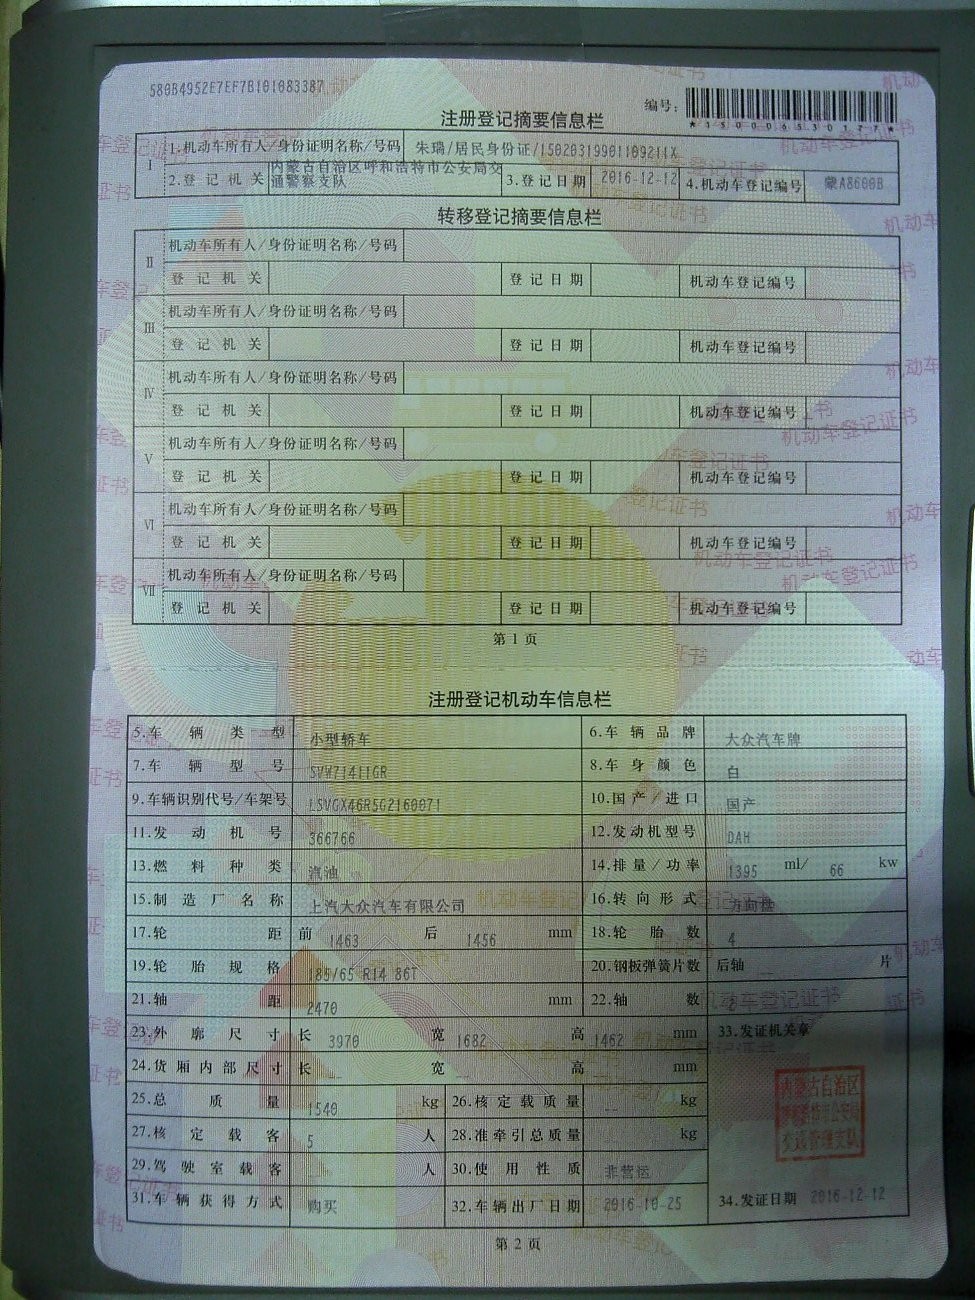 580B4952E7EF7B101083387
编号:
注册登记摘要信息栏
*150006530377*
I
1.机动车所有人/身份证明名称/号码 朱瑞/居民身份证/15020319901109211X
2.登记机关 内蒙古自治区呼和浩特市公安局交通警察支队 3.登记日期 2016-12-12 4.机动车登记编号 蒙A8600B
转移登记摘要信息栏
II 机动车所有人/身份证明名称/号码
登记机关 登记日期 机动车登记编号
III 机动车所有人/身份证明名称/号码
登记机关 登记日期 机动车登记编号
IV 机动车所有人/身份证明名称/号码
登记机关 登记日期 机动车登记编号
V 机动车所有人/身份证明名称/号码
登记机关 登记日期 机动车登记编号
VI 机动车所有人/身份证明名称/号码
登记机关 登记日期 机动车登记编号
VII 机动车所有人/身份证明名称/号码
登记机关 登记日期 机动车登记编号
第 1 页
注册登记机动车信息栏
5.车辆类型 小型轿车 6.车辆品牌 大众汽车牌
7.车辆型号 SVW71411GR 8.车身颜色 白
9.车辆识别代号/车架号 LSVGX46R5G2160071 10.国产/进口 国产
11.发动机号 366766 12.发动机型号 DAH
13.燃料种类 汽油 14.排量/功率 1395 ml/ 66 kw
15.制造厂名称 上汽大众汽车有限公司 16.转向形式 方向盘
17.轮距 前 1463 后 1456 mm 18.轮胎数 4
19.轮胎规格 185/65 R14 86T 20.钢板弹簧片数 后轴 -- 片
21.轴距 2470 mm 22.轴数 2
23.外廓尺寸 长 3970 宽 1682 高 1462 mm 33.发证机关章
24.货厢内部尺寸 长 -- 宽 -- 高 -- mm
25.总质量 1540 kg 26.核定载质量 -- kg
27.核定载客 5 人 28.准牵引总质量 -- kg
29.驾驶室载客 -- 人 30.使用性质 非营运
31.车辆获得方式 购买 32.车辆出厂日期 2016-10-25 34.发证日期 2016-12-12
内蒙古自治区
第 2 页